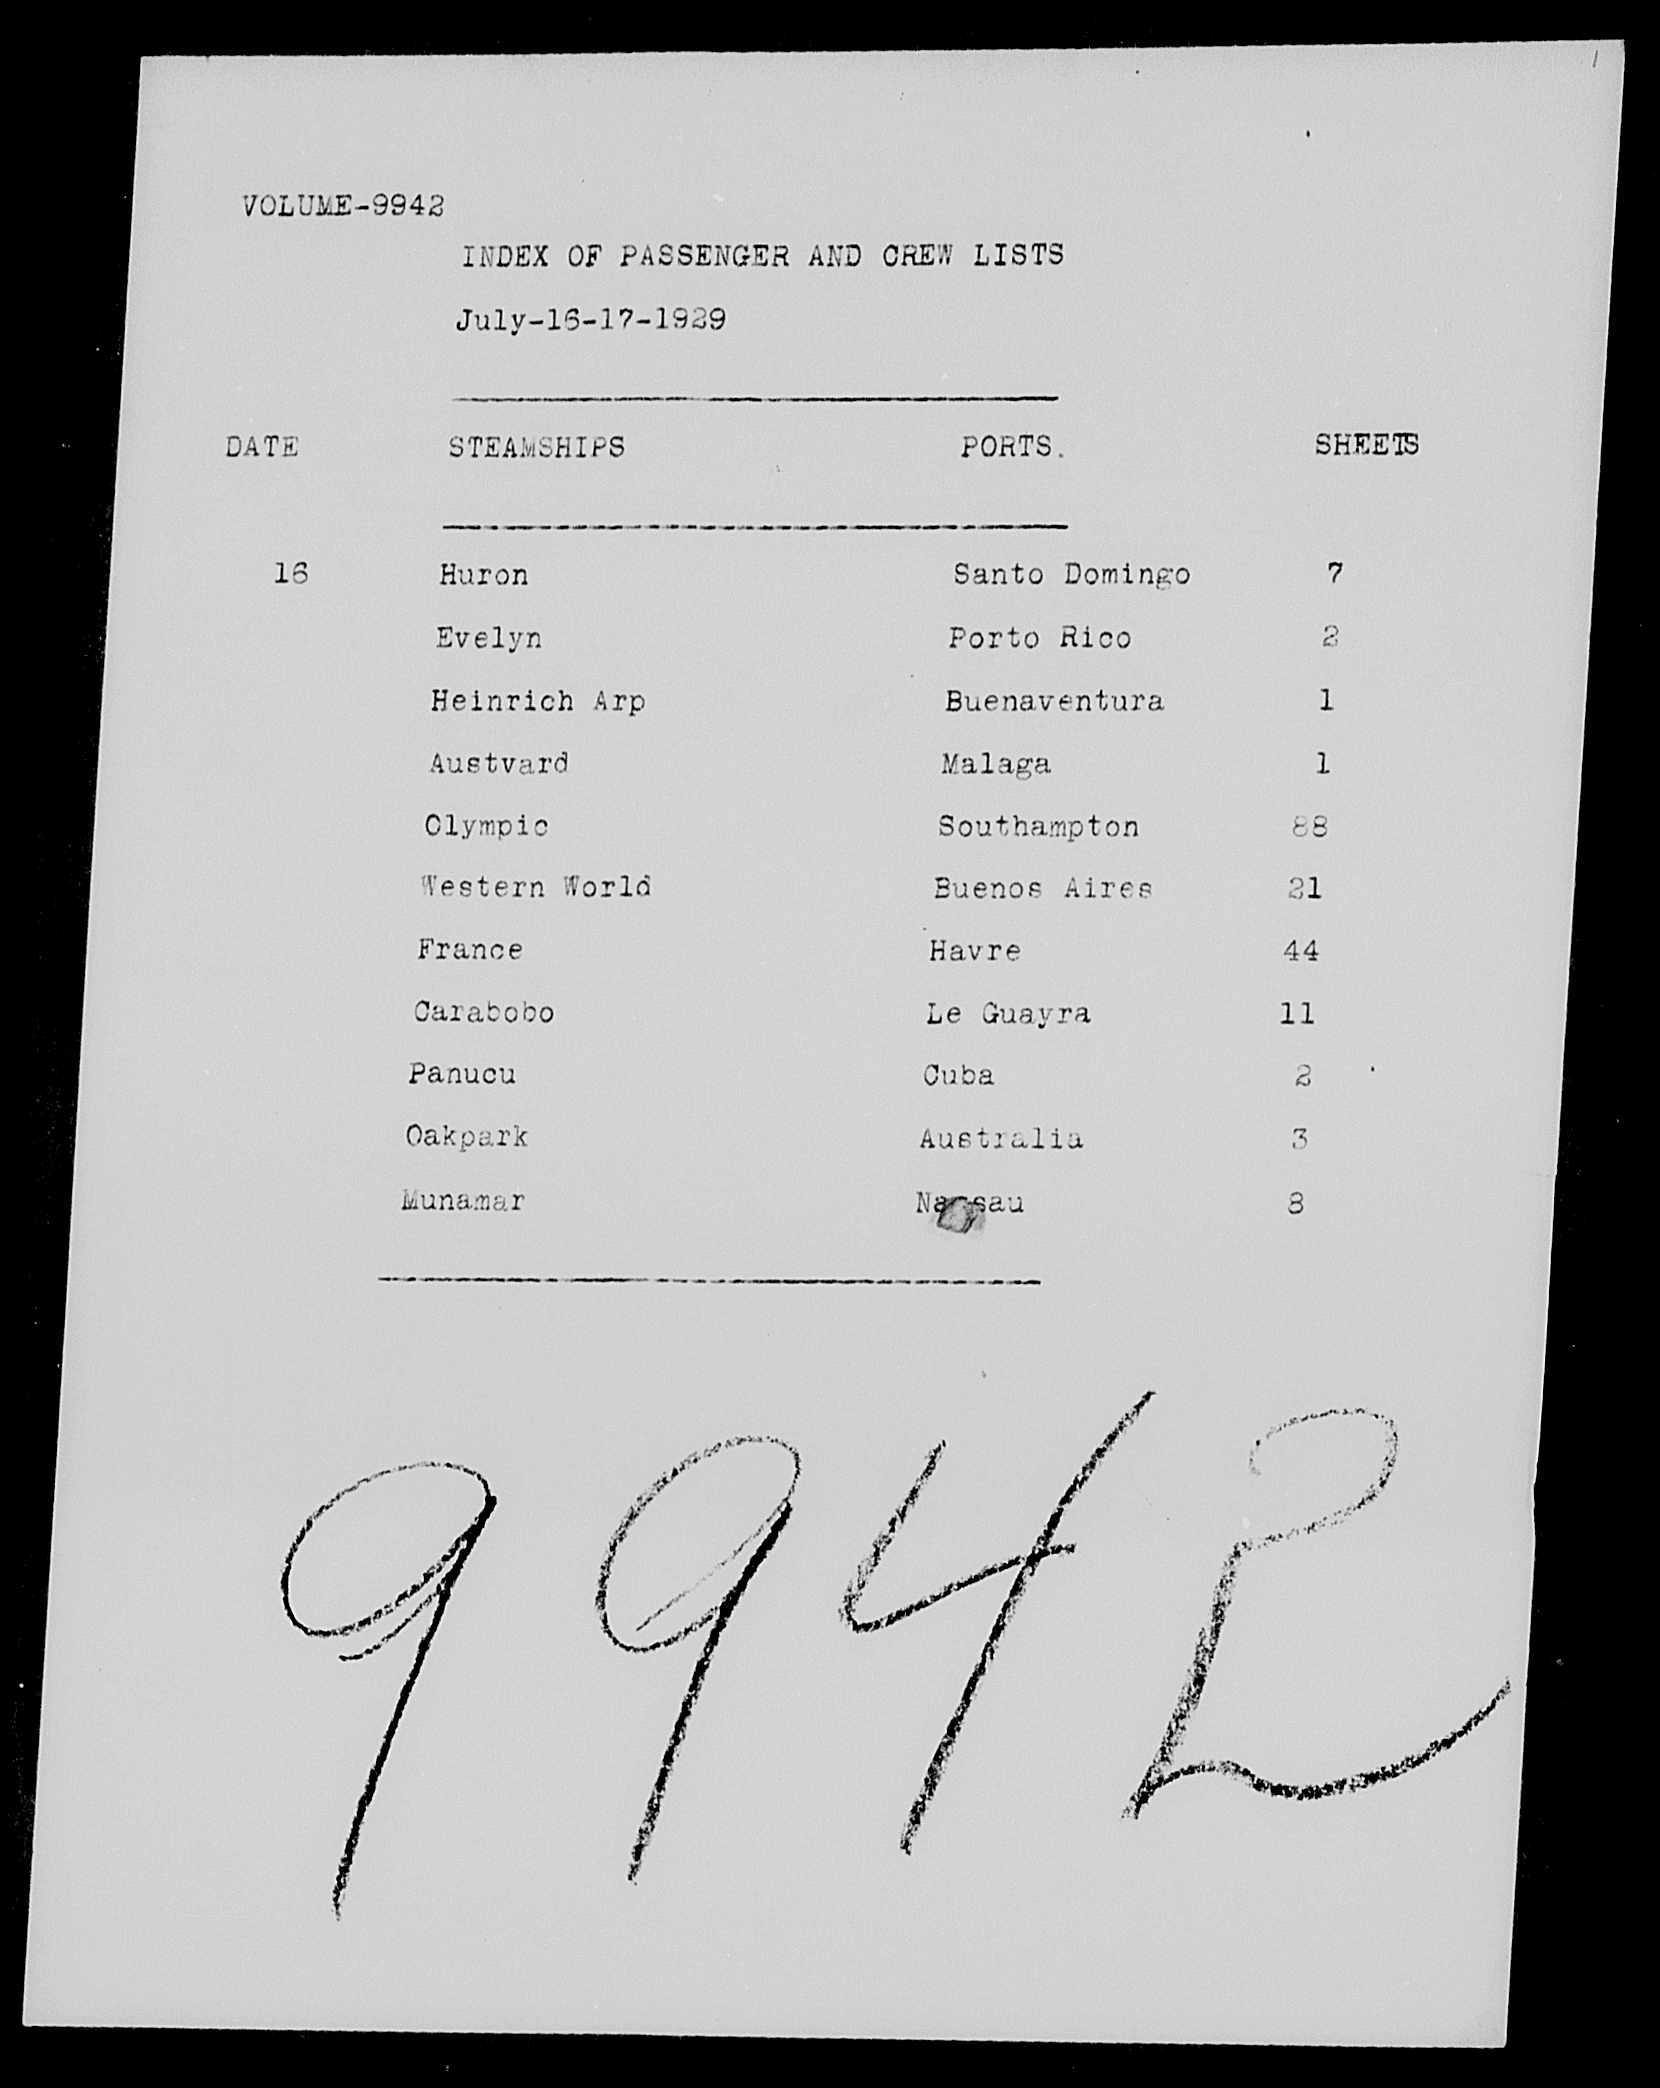 VOLUME-9942
INDEX OF PASSENGER AND CREW LISTS
July-16-17-1929
DATE STEAMSHIPS PORTS. SHEETS
16 Huron Santo Domingo 7
Evelyn Porto Rico 2
Heinrich Arp Buenaventura 1
Austvard Malaga 1
Olympic Southampton 88
Western World Buenos Aires 21
France Havre 44
Carabobo Le Guayra 11
Panucu Cuba 2
Oakpark Australia 3
Munamar Nassau 8
9942